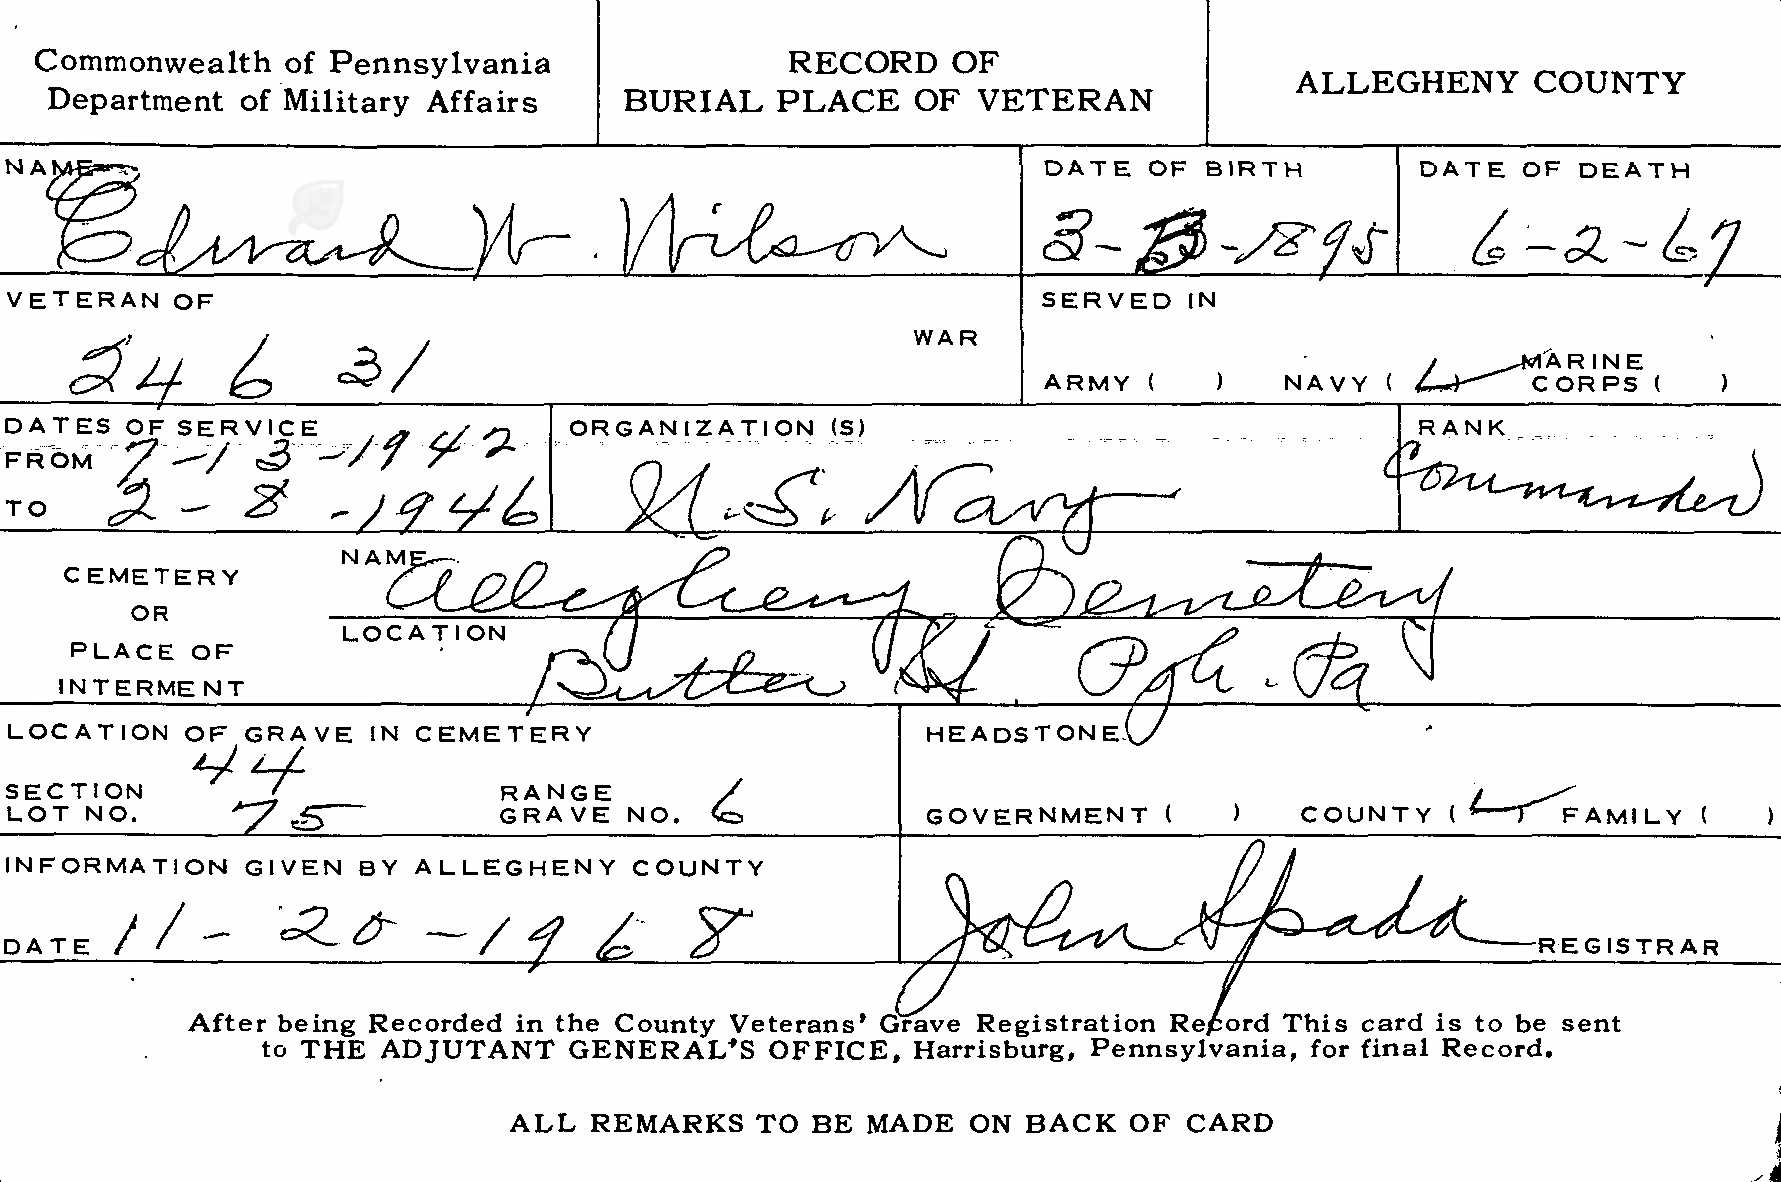 Commonwealth of Pennsylvania
Department of Military Affairs
RECORD OF
BURIAL PLACE OF VETERAN
ALLEGHENY COUNTY
NAME
Edward W. Wilson
DATE OF BIRTH
3- -1895
DATE OF DEATH
6-2-67
VETERAN OF
24 6 31
WAR
SERVED IN
ARMY ( ) NAVY ( ) MARINE CORPS ( )
DATES OF SERVICE
FROM 7-13-1942
TO 2-8-1946
ORGANIZATION (S)
U.S. Navy
RANK
Commander
CEMETERY
OR
PLACE OF
INTERMENT
NAME
Allegheny Cemetery
LOCATION
Butler St. Pgh. Pa
LOCATION OF GRAVE IN CEMETERY
SECTION 44 RANGE
LOT NO. 75 GRAVE NO. 6
HEADSTONE
GOVERNMENT ( ) COUNTY ( ) FAMILY ( )
INFORMATION GIVEN BY ALLEGHENY COUNTY
DATE 11-20-1968
John Spada REGISTRAR
After being Recorded in the County Veterans' Grave Registration Record This card is to be sent
to THE ADJUTANT GENERAL'S OFFICE, Harrisburg, Pennsylvania, for final Record.
ALL REMARKS TO BE MADE ON BACK OF CARD